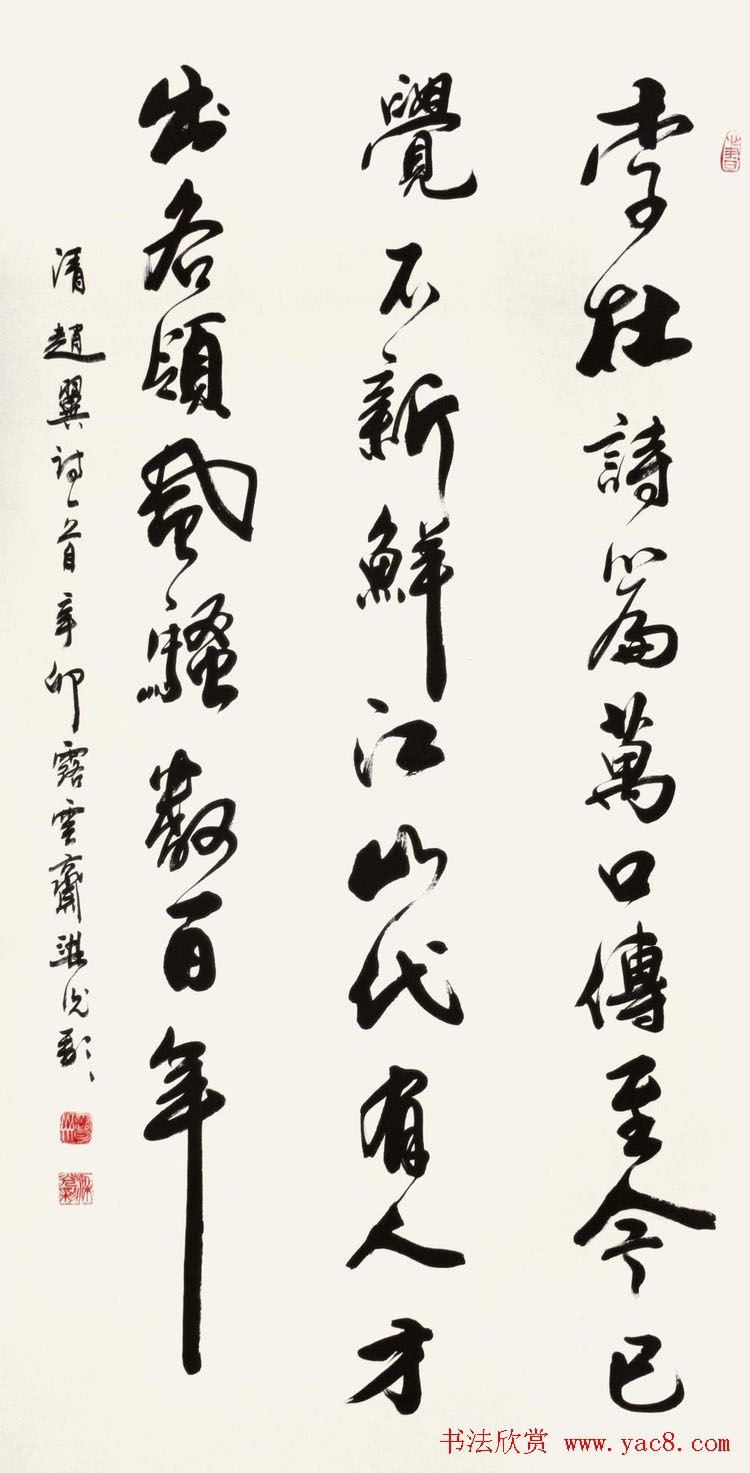 李杜詩篇萬口傳至今已
覺不新鮮江山代有人才
出各領風騷數百年
清趙翼詩一首辛卯露雲齋
书法欣赏 www.yac8.com